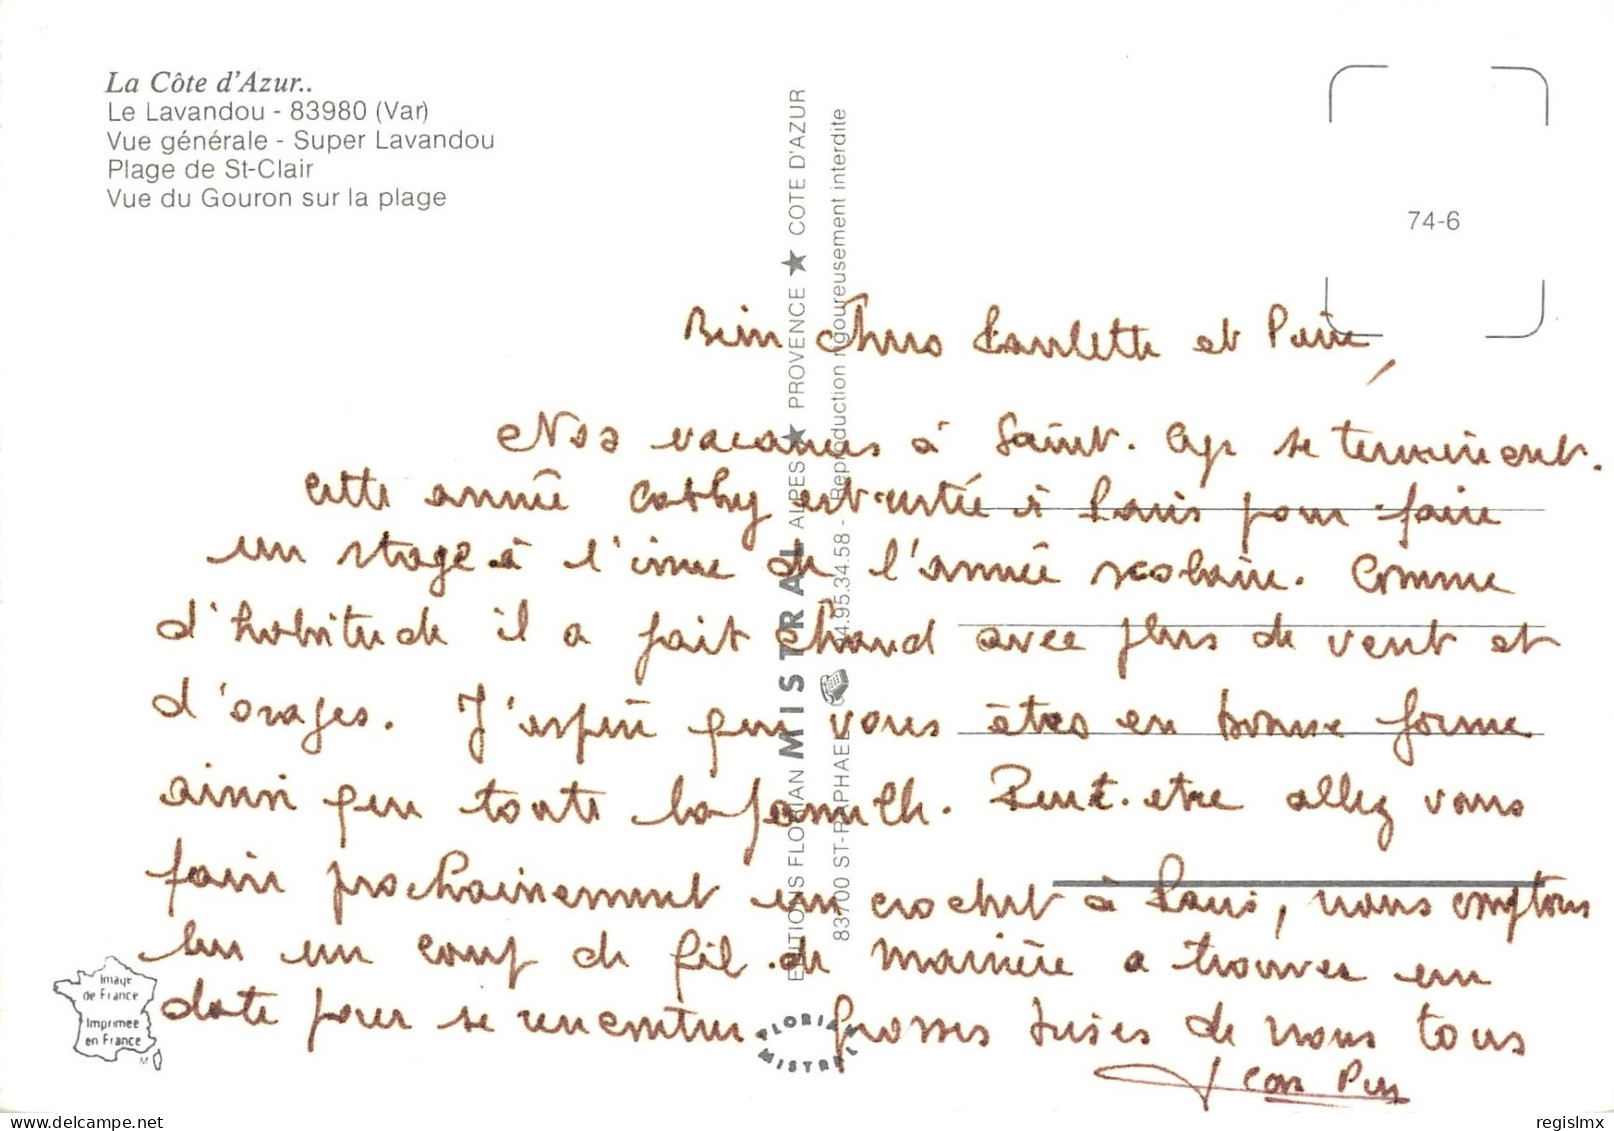 La Côte d'Azur..
Le Lavandou - 83980 (Var)
Vue générale - Super Lavandou
Plage de St-Clair
Vue du Gouron sur la plage
74-6
EDITIONS FLORIAN MISTRAL ALPES ★ PROVENCE ★ COTE D'AZUR
83700 ST-RAPHAEL 94.95.34.58 - Reproduction rigoureusement interdite
Bien chers Paulette et Pierre,
Nos vacances à Saint. Cyr se terminent.
Cette année Cathy est restée à Paris pour faire
un stage à l'issue de l'année scolaire. Comme
d'habitude il a fait chaud avec plus de vent et
d'orages. J'espère que vous êtes en bonne forme
ainsi que toute la famille. Peut-etre allez vous
faire prochainement un crochet à Paris, nous comptons
sur un coup de fil de manière a trouver une
date pour se rencontrer. Grosses bises de nous tous
Jean
Image
de France
Imprimée
en France
M
FLORIAN
MISTRAL
regislmx